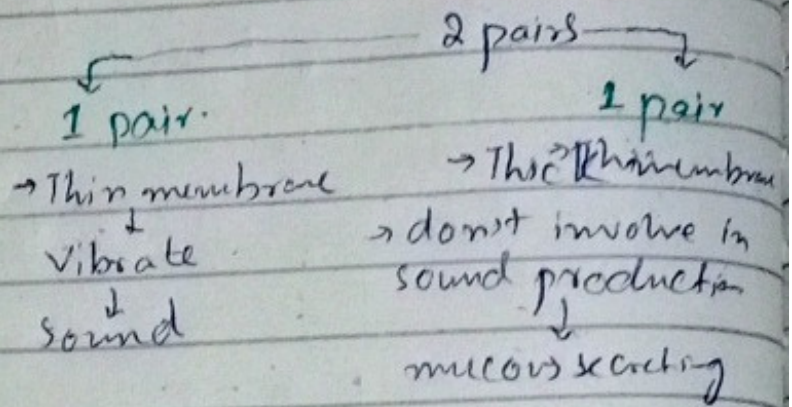 2 pairs
1 pair.
→ Thin membrane
↓
Vibrate
↓
Sound
1 pair
→ Thick membrane
→ don't involve in
sound production
↓
mucous secreting